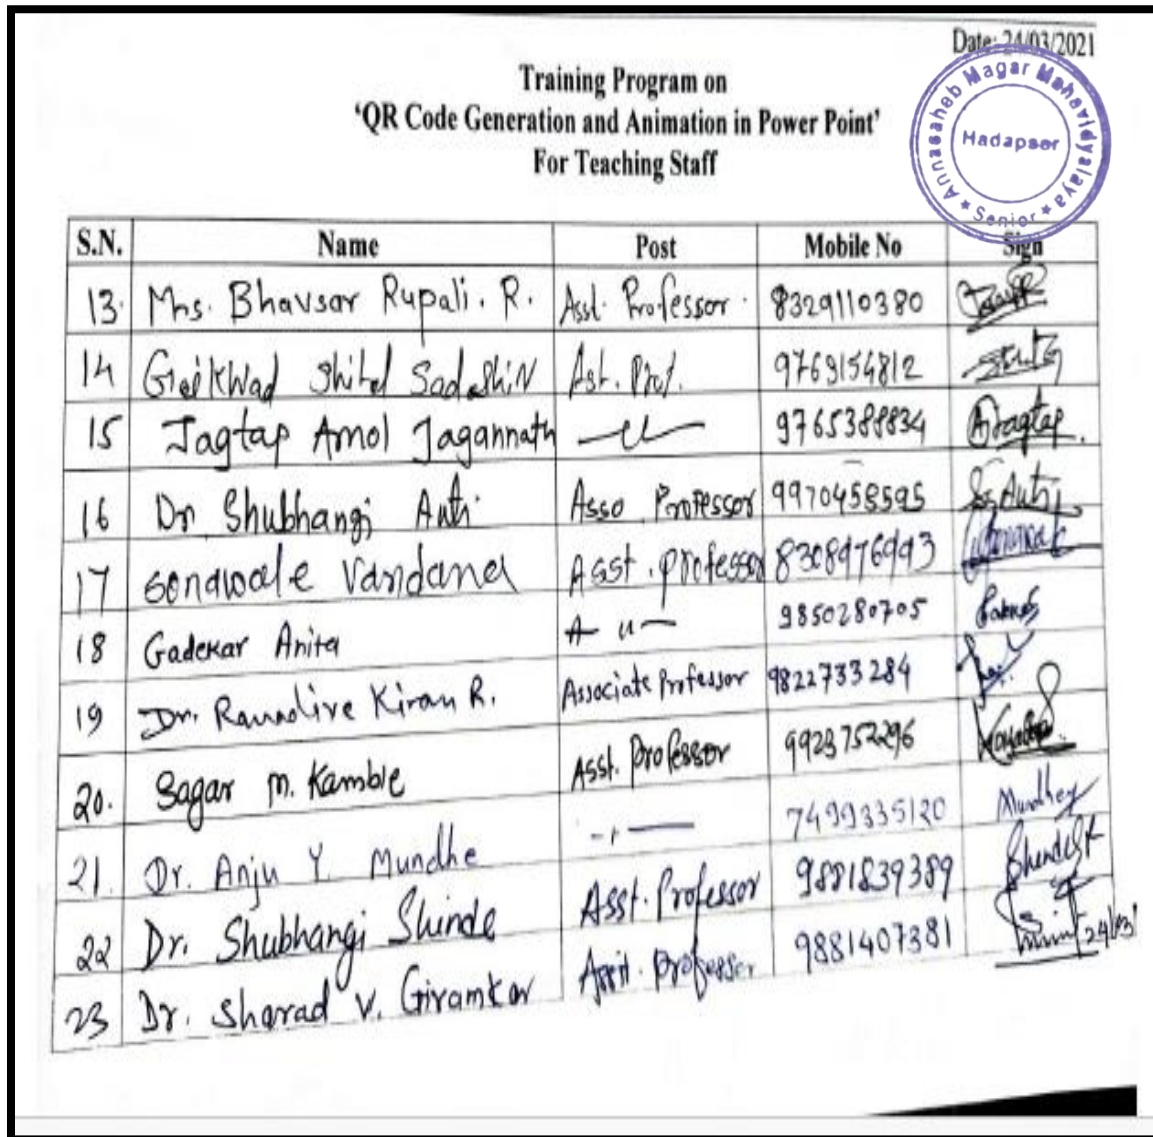 Date: 24/03/2021
Annasaheb Magar Mahavidyalaya
Hadapser
★ Senior ★
Training Program on
‘QR Code Generation and Animation in Power Point’
For Teaching Staff
S.N. Name Post Mobile No Sign
13. Mrs. Bhavsar Rupali. R. Asst. Professor. 8329110380
14 Gaikwad Shital Sadashiv Ast. Prof. 9763154812
15 Jagtap Amol Jagannath —〃— 9765388834 AJagtap.
16 Dr Shubhangi Auti Asso. Professor 9970458595 SsAuti
17 Sonawale Vandana Asst. professor 8308976993
18 Gadekar Anita 〃 9850280705
19 Dr. Kiran R. Associate Professor 9822733284
20. Sagar M. Kamble Asst. Professor 9923752296
21. Dr. Anju Y. Mundhe -〃- 7499335120 Mundhey
22 Dr. Shubhangi Shinde Asst. Professor 9881839389
23 Dr. Sharad V. Giramkar Asst. Professor 9881407381 24/3